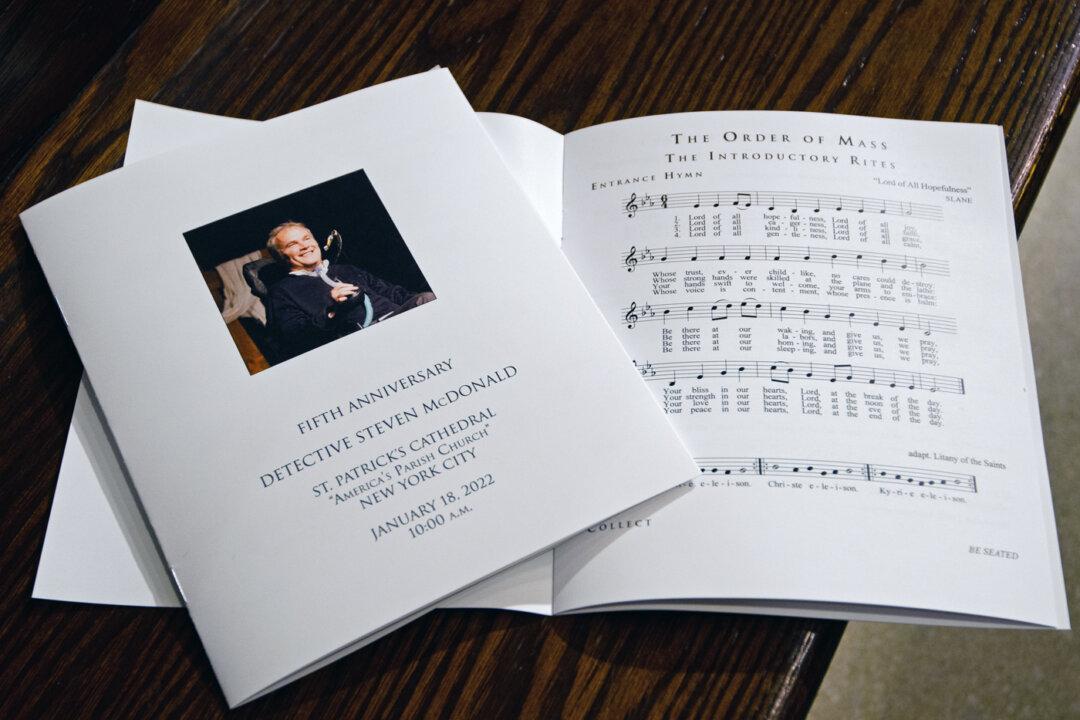 FIFTH ANNIVERSARY
DETECTIVE STEVEN McDONALD
ST. PATRICK'S CATHEDRAL
"AMERICA'S PARISH CHURCH"
NEW YORK CITY
JANUARY 18, 2022
10:00 A.M.
THE ORDER OF MASS
THE INTRODUCTORY RITES
ENTRANCE HYMN
"Lord of All Hopefulness"
SLANE
1. Lord of all hope - ful - ness, Lord of all joy,
2. Lord of all ea - ger - ness, Lord of all faith,
3. Lord of all kind - li - ness, Lord of all grace,
4. Lord of all gen - tle - ness, Lord of all calm,
Whose trust, ev - er child - like, no cares could de - stroy:
Whose strong hands were skilled at the plane and the lathe:
Your hands swift to wel - come, your arms to em - brace:
Whose voice is con - tent - ment, whose pres - ence is balm:
Be there at our wak - ing, and give us, we pray,
Be there at our la - bors, and give us, we pray,
Be there at our hom - ing, and give us, we pray,
Be there at our sleep - ing, and give us, we pray,
Your bliss in our hearts, Lord, at the break of the day.
Your strength in our hearts, Lord, at the noon of the day.
Your love in our hearts, Lord, at the eve of the day.
Your peace in our hearts, Lord, at the end of the day.
adapt. Litany of the Saints
e - le - i - son. Chri - ste e - le - i - son. Ky - ri - e e - le - i - son.
COLLECT
BE SEATED